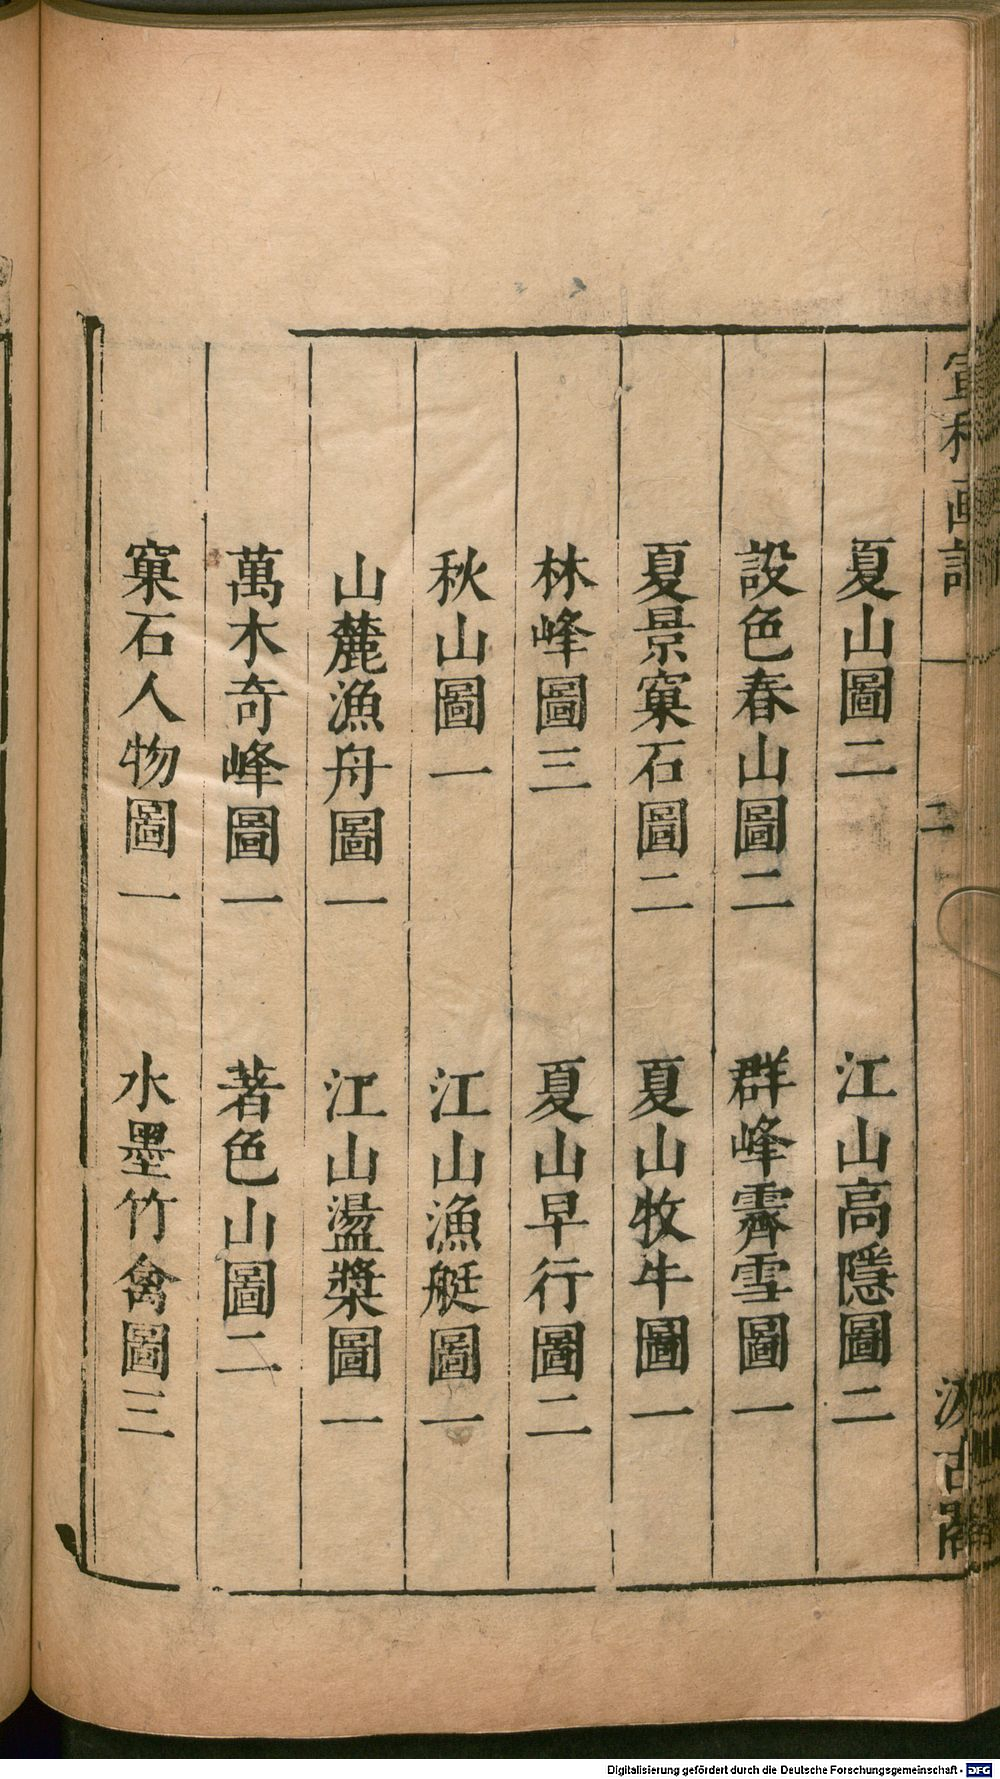 宣和画譜
二
汲古閣
夏山圖二　江山高隱圖二
設色春山圖二　群峰霽雪圖一
夏景窠石圖二　夏山牧牛圖一
林峰圖三　夏山早行圖二
秋山圖一　江山漁艇圖一
山麓漁舟圖一　江山盪槳圖一
萬木奇峰圖一　著色山圖二
窠石人物圖一　水墨竹禽圖三
Digitalisierung gefördert durch die Deutsche Forschungsgemeinschaft - DFG